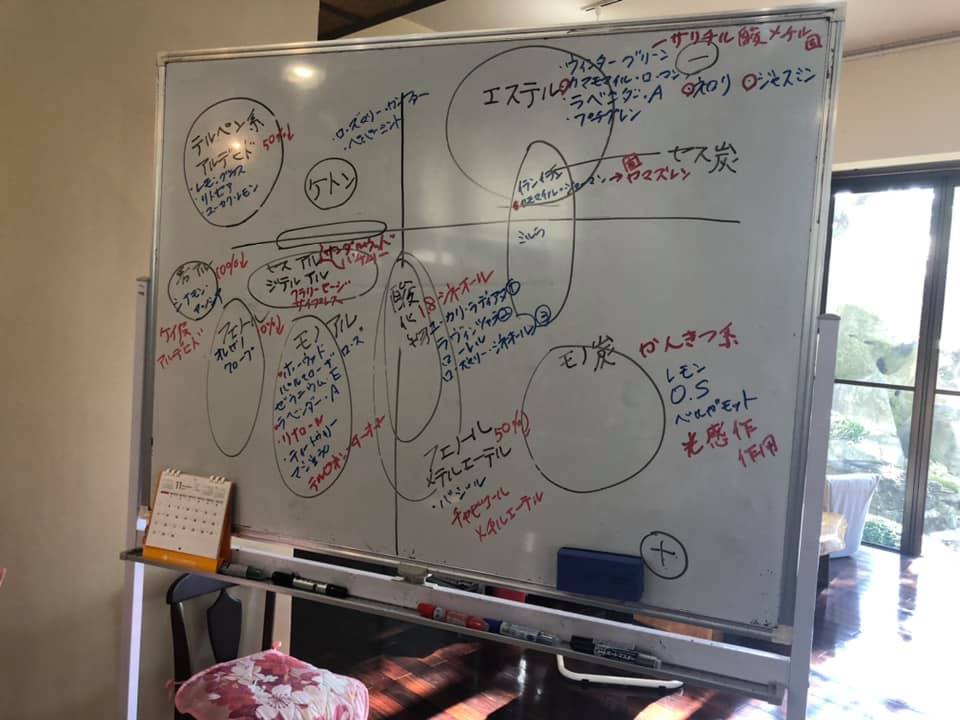 テルペン系
アルデヒド
50%↓
・レモングラス
・リトセア
ユーカリ・レモン
・ペパーミント
ケトン
エステル
・ウィンターグリーン
カマモマイル・ローマン
・ラベンダー・A
・プチグレン
サリチル酸メチル
固
－
ネロリ
ジャスミン
セス炭
固
→カマズレン
ミルラ
芳アル
50%↓
シナモン・
ケイ皮
アルデヒド
セス アル
ジテルアル
サンダルウッド
パチュリー
クラリーセージ
サイプレス
フェノール
オレガノ
クローブ
モノアル
・ホーウッド
パルマローザ
ゼラニウム・E
ラベンダー・A
ローズ
・リナロール
・ティートゥリー
マジョラム
酸化物
1.8シネオール
ユーカリ・ラディアタ①
ラヴィンツァラ②
ローレル
ローズマリー・シネオール③
フェノール
メチルエーテル
50%
・バジル
チャビコール
メチルエーテル
モノ炭
かんきつ系
レモン
O.S
ベルガモット
光感作
作用
＋
11